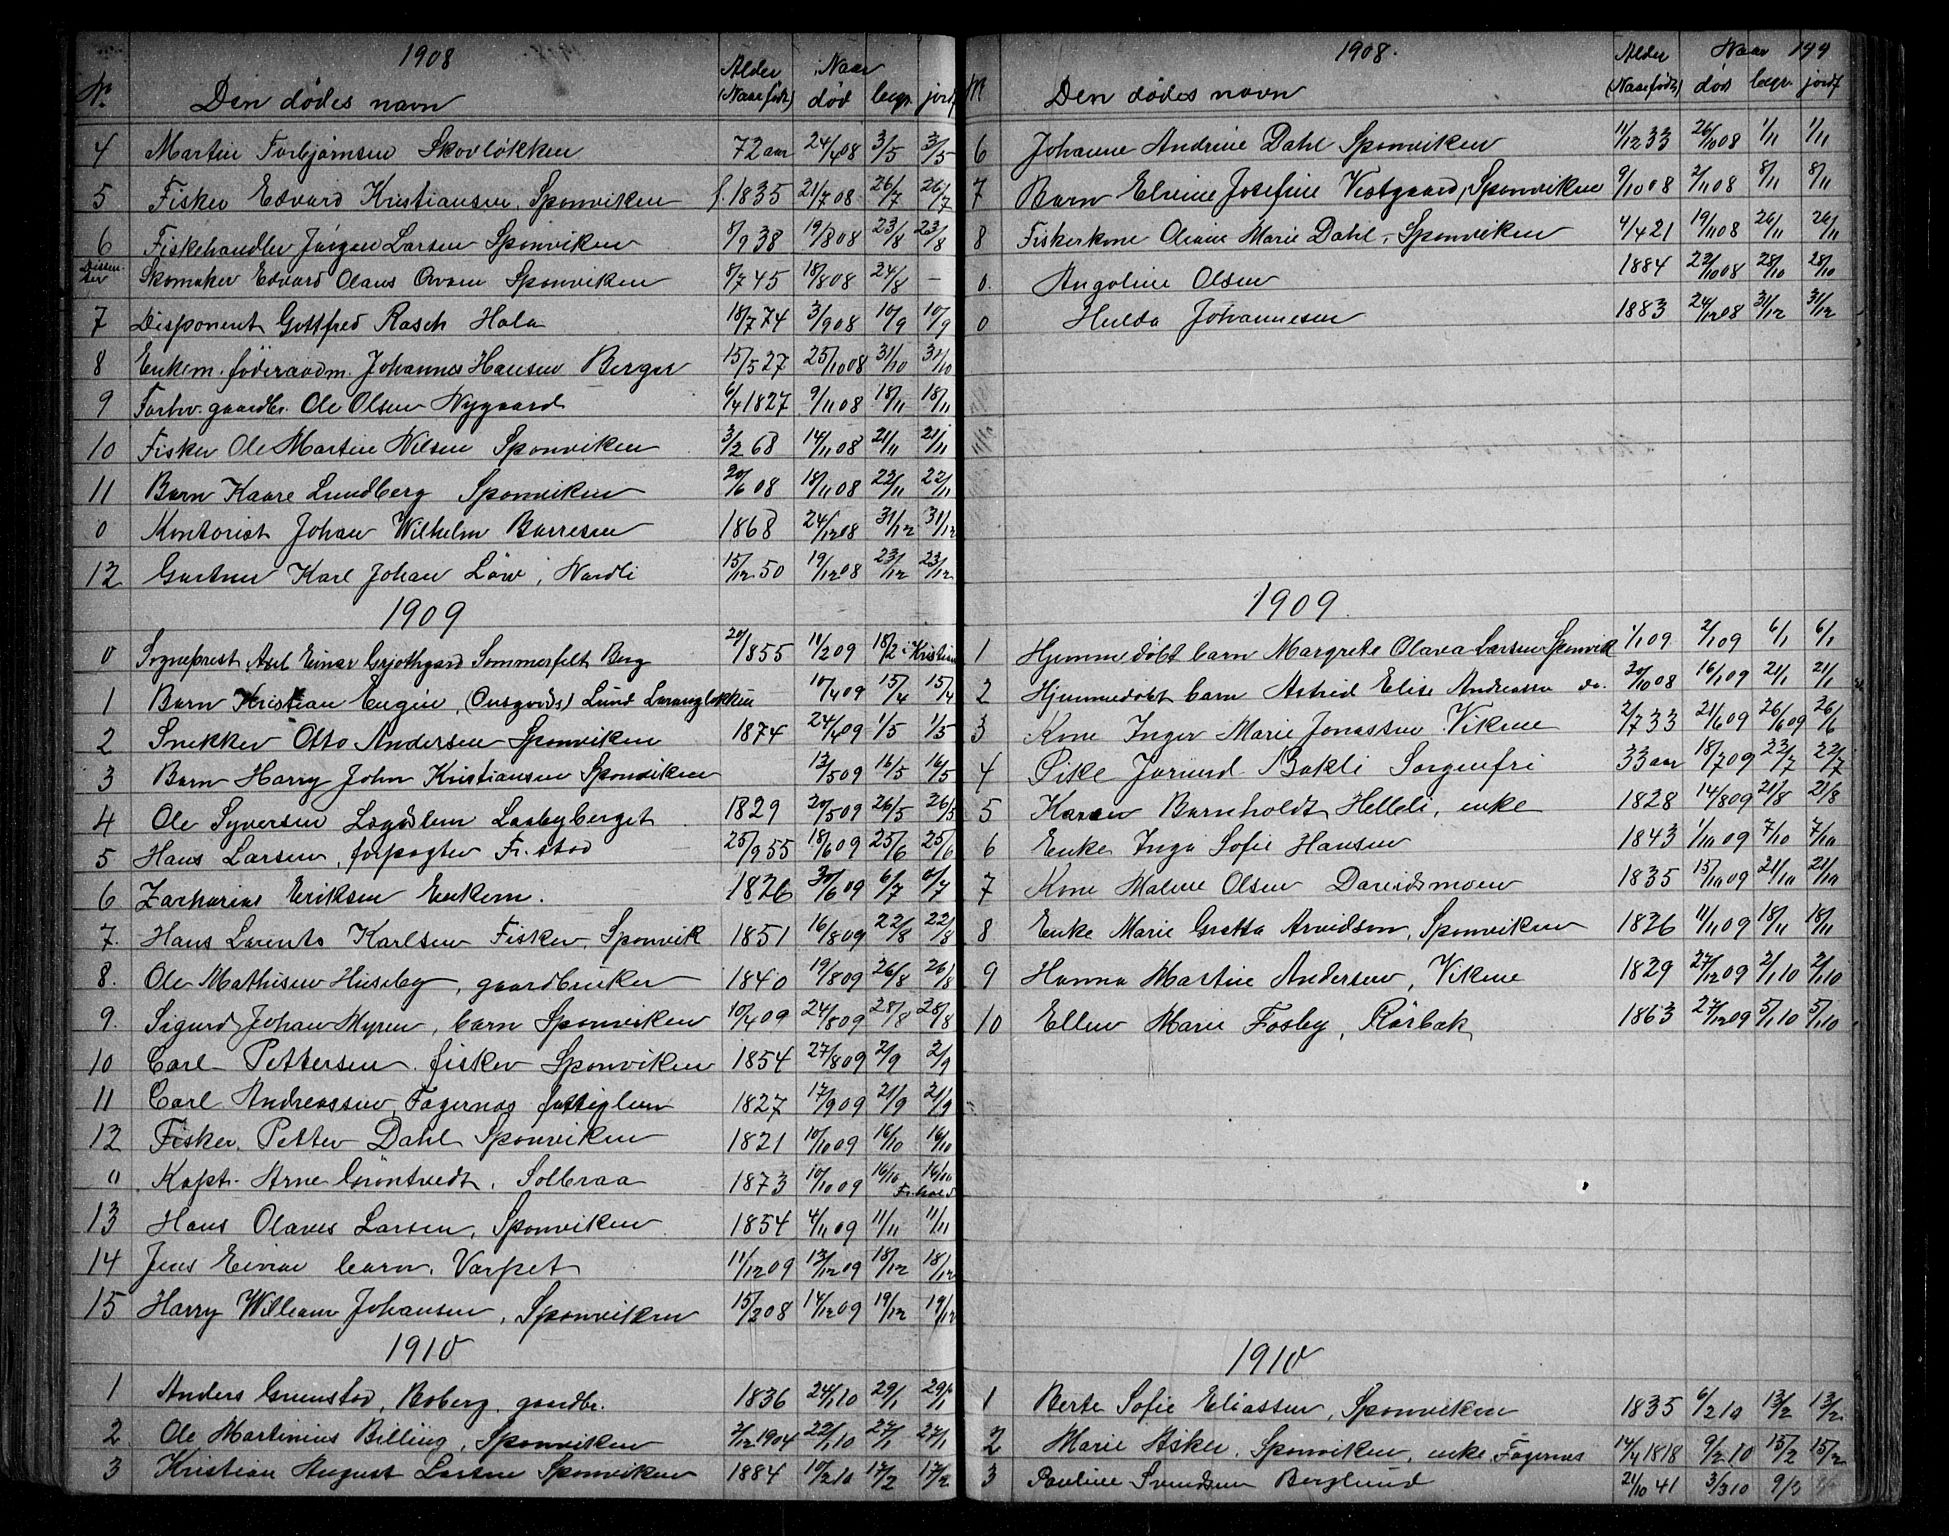 1908
Nr. Den dødes navn Alder (Naar født) Naar død begr. jordf
4 Martin Torbjørnsen Skovløkken 72 aar 24/4 08 3/5 3/5
5 Fisker Edvard Kristiansen, Sponviken f. 1835 21/7 08 26/7 26/7
6 Fiskehandler Jørgen Larsen Sponviken 8/9 38 19/8 08 23/8 23/8
Skomaker Edvard Olaus Sponviken 8/7 45 18/8 08 24/8 –
7 Disponent Gottfred Rasch Hola 18/7 74 3/9 08 10/9 10/9
8 Enkem. føderaadm. Johannes Hansen Berger 15/5 27 25/10 08 31/10 31/10
9 Forhv. gaardbr. Ole Olsen Nygaard 6/4 1827 9/11 08 18/11 18/11
10 Fisker Ole Martin Nilsen Sponviken 3/2 68 14/11 08 21/11 21/11
11 Barn Kaare Lundberg Sponviken 20/6 08 18/11 08 22/11 22/11
0 Kontorist Johan Wilhelm Borresen 1868 24/12 08 31/12 31/12
12 Gartner Karl Johan Löw, Nordli 15/12 50 19/12 08 23/12 23/12
1909
0 Sogneprest Axel Einar Grjothgard Sommerfelt Berg 20/1 855 11/2 09 18/2 i Kristia
1 Barn Kristian Eugin, Lund 10/4 09 15/4 15/4
2 Snekker Otto Andersen Sponviken 1874 24/4 09 1/5 1/5
3 Barn Harry John Kristiansen Sponviken 13/5 09 16/5 16/5
4 Ole Syversen Lægdslem Laabyberget 1829 20/5 09 26/5 26/5
5 Hans Larsen, forpagter Fr.stad 25/9 55 18/6 09 25/6 25/6
6 Zacharias Eriksen Enkem. 1826 30/6 09 6/7 6/7
7. Hans Lorents Karlsen Fisker, Sponvik 1851 16/8 09 22/8 22/8
8. Ole Mathisen Huseby, gaardbruker 1840 19/8 09 26/8 26/8
9. Sigurd Johan Myren, barn Sponviken 10/4 09 24/8 09 28/8 28/8
10 Carl Pettersen. fisker Sponviken 1854 27/8 09 2/9 2/9
11 Carl Andreassen, Fagernæs fattiglem 1827 17/9 09 21/9 21/9
12 Fisker. Petter Dahl Sponviken 1821 10/10 09 16/10 16/10
0 Kapt. Arne Gröntvedt, Solbraa 1873 10/10 09 16/10 16/10 Fr.hald
13 Hans Olaves Larsen, Sponviken 1854 4/11 09 11/11 11/11
14 Jens Einar barn. Varpet 11/12 09 13/12 09 18/12 18/12
15 Harry William Johansen, Sponviken 15/2 08 14/12 09 19/12 19/12
1910
1 Anders Grimstad, Boberg, gaardbr. 1836 24/1 10 29/1 29/1
2 Ole Martinius Billing, Sponviken 3/12 1904 22/1 10 27/1 27/1
3 Kristian August Larsen Sponviken 1884 10/2 10 17/2 17/2
1908. 199
N. Den dødes navn Alder (Naar født) Naar død begr. jordf
6 Johanne Andrine Dahl Sponviken 11/12 33 26/10 08 1/11 1/11
7 Barn Elvine Josefine Vestgaard, Sponviken 9/10 08 2/11 08 8/11 8/11
8 Fiskerkone Oliane Marie Dahl, Sponviken 4/4 21 19/11 08 26/11 26/11
0. Angoline Olsen 1884 23/10 08 28/10 28/10
0 Hulda Johannesen 1883 24/12 08 31/12 31/12
1909.
1 Hjemmedøbt barn Margrete Olava Larsen Sponvik 1/1 09 2/1 09 6/1 6/1
2 Hjemmedøbt barn Astrid Elise Andreassen do. 30/10 08 16/1 09 21/1 21/1
3 Kone Inger Marie Jonassen Vikene 2/7 33 21/6 09 26/6 09 26/6
4 Pike Jorund Bakli Sorgenfri 33 aar 18/7 09 22/7 22/7
5 Karen Barnholdt Helleli, enke 1828 14/8 09 21/8 21/8
6 Enke Inga Sofie Hansen 1843 1/10 09 7/10 7/10
7 Kone Malene Olsen Davidsmoen 1835 15/10 09 21/10 21/10
8 Enke Marie Gretta Arvidson, Sponviken 1836 11/11 09 18/11 18/11
9 Hanna Martine Andersen, Vikene 1829 27/12 09 2/1 10 2/1 10
10 Ellen Marie Fosby, Rørbæk 1863 27/12 09 5/1 10 5/1 10
1910
1 Berte Sofie Eliassen, Sponviken 1835 6/2 10 13/2 13/2
2 Marie Asker, Sponviken, enke Fagernes 14/4 1818 9/2 10 15/2 15/2
3 Pauline Svendsen Berglund 21/10 41 3/3 10 9/3